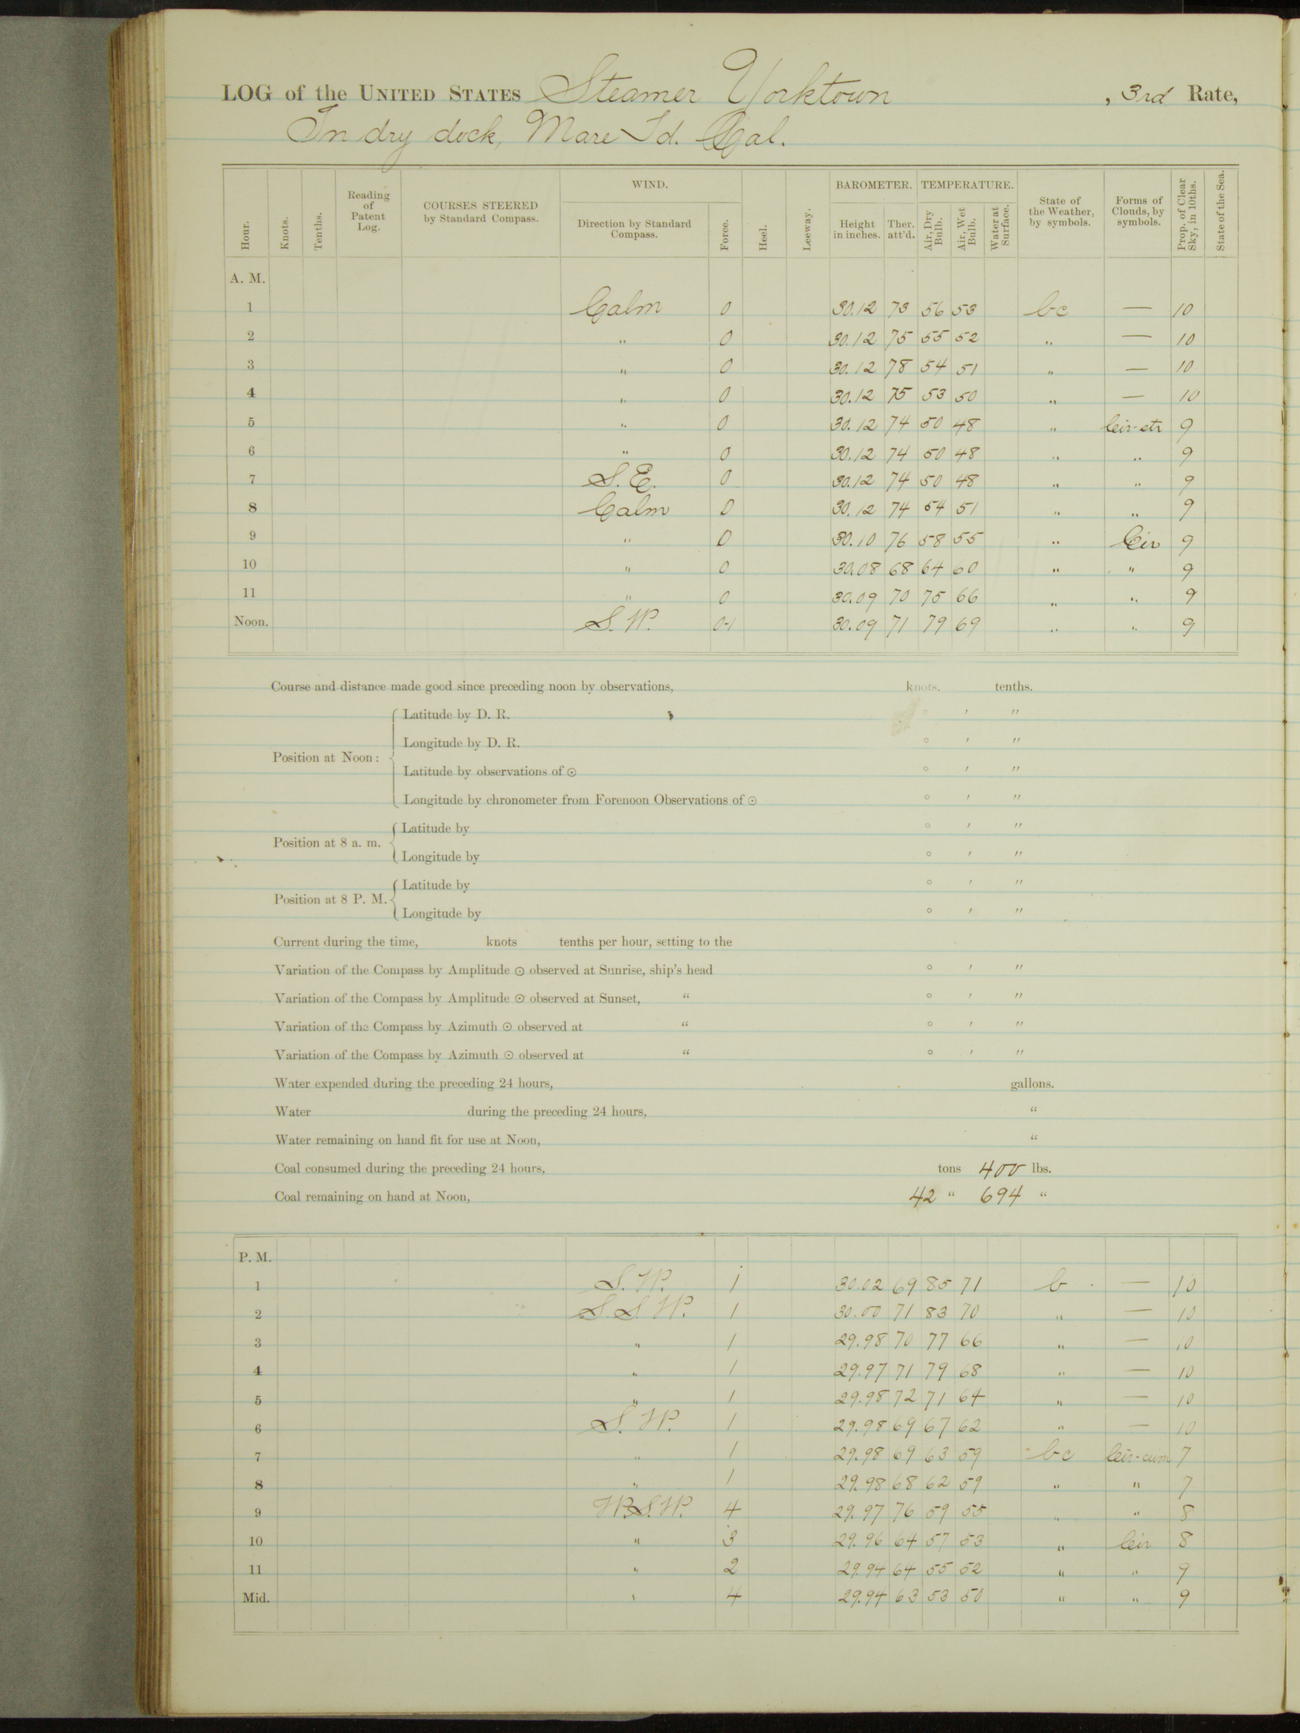 LOG of the UNITED STATES Steamer Yorktown , 3rd Rate,
In dry dock, Mare Id. Cal.
Hour. Knots. Tenths. Reading of Patent Log. COURSES STEERED by Standard Compass. WIND. Direction by Standard Compass. Force. Heel. Leeway. BAROMETER. Height in inches. Ther. att'd. TEMPERATURE. Air, Dry Bulb. Air, Wet Bulb. Water at Surface. State of the Weather, by symbols. Forms of Clouds, by symbols. Prop. of Clear Sky, in 10ths. State of the Sea.
A. M.
1 Calm 0 30.12 73 56 53 bc — 10
2 " 0 30.12 75 55 52 " — 10
3 " 0 30.12 78 54 51 " — 10
4 " 0 30.12 75 53 50 " — 10
5 " 0 30.12 74 50 48 " Cir-str 9
6 " 0 30.12 74 50 48 " " 9
7 S.E. 0 30.12 74 50 48 " " 9
8 Calm 0 30.12 74 54 51 " " 9
9 " 0 30.10 76 58 55 " Cir 9
10 " 0 30.08 68 64 60 " " 9
11 " 0 30.09 70 75 66 " " 9
Noon. S.W. 0-1 30.09 71 79 69 " " 9
Course and distance made good since preceding noon by observations, knots. tenths.
Position at Noon: Latitude by D. R. ° ′ ″
Longitude by D. R. ° ′ ″
Latitude by observations of ☉ ° ′ ″
Longitude by chronometer from Forenoon Observations of ☉ ° ′ ″
Position at 8 a. m. Latitude by ° ′ ″
Longitude by ° ′ ″
Position at 8 P. M. Latitude by ° ′ ″
Longitude by ° ′ ″
Current during the time, knots tenths per hour, setting to the
Variation of the Compass by Amplitude ☉ observed at Sunrise, ship's head ° ′ ″
Variation of the Compass by Amplitude ☉ observed at Sunset, " ° ′ ″
Variation of the Compass by Azimuth ☉ observed at " ° ′ ″
Variation of the Compass by Azimuth ☉ observed at " ° ′ ″
Water expended during the preceding 24 hours, gallons.
Water during the preceding 24 hours, "
Water remaining on hand fit for use at Noon, "
Coal consumed during the preceding 24 hours, tons 400 lbs.
Coal remaining on hand at Noon, 42 " 694 "
P. M.
1 S.W. 1 30.02 69 85 71 b — 10
2 S.S.W. 1 30.00 71 83 70 " — 10
3 " 1 29.98 70 77 66 " — 10
4 " 1 29.97 71 79 68 " — 10
5 " 1 29.98 72 71 64 " — 10
6 S.W. 1 29.98 69 67 62 " — 10
7 " 1 29.98 69 63 59 bc Cir-cum 7
8 " 1 29.98 68 62 59 " " 7
9 W.S.W. 4 29.97 76 59 55 " " 8
10 " 3 29.96 64 57 53 " Cir 8
11 " 2 29.94 64 55 52 " " 9
Mid. " 4 29.94 63 53 50 " " 9